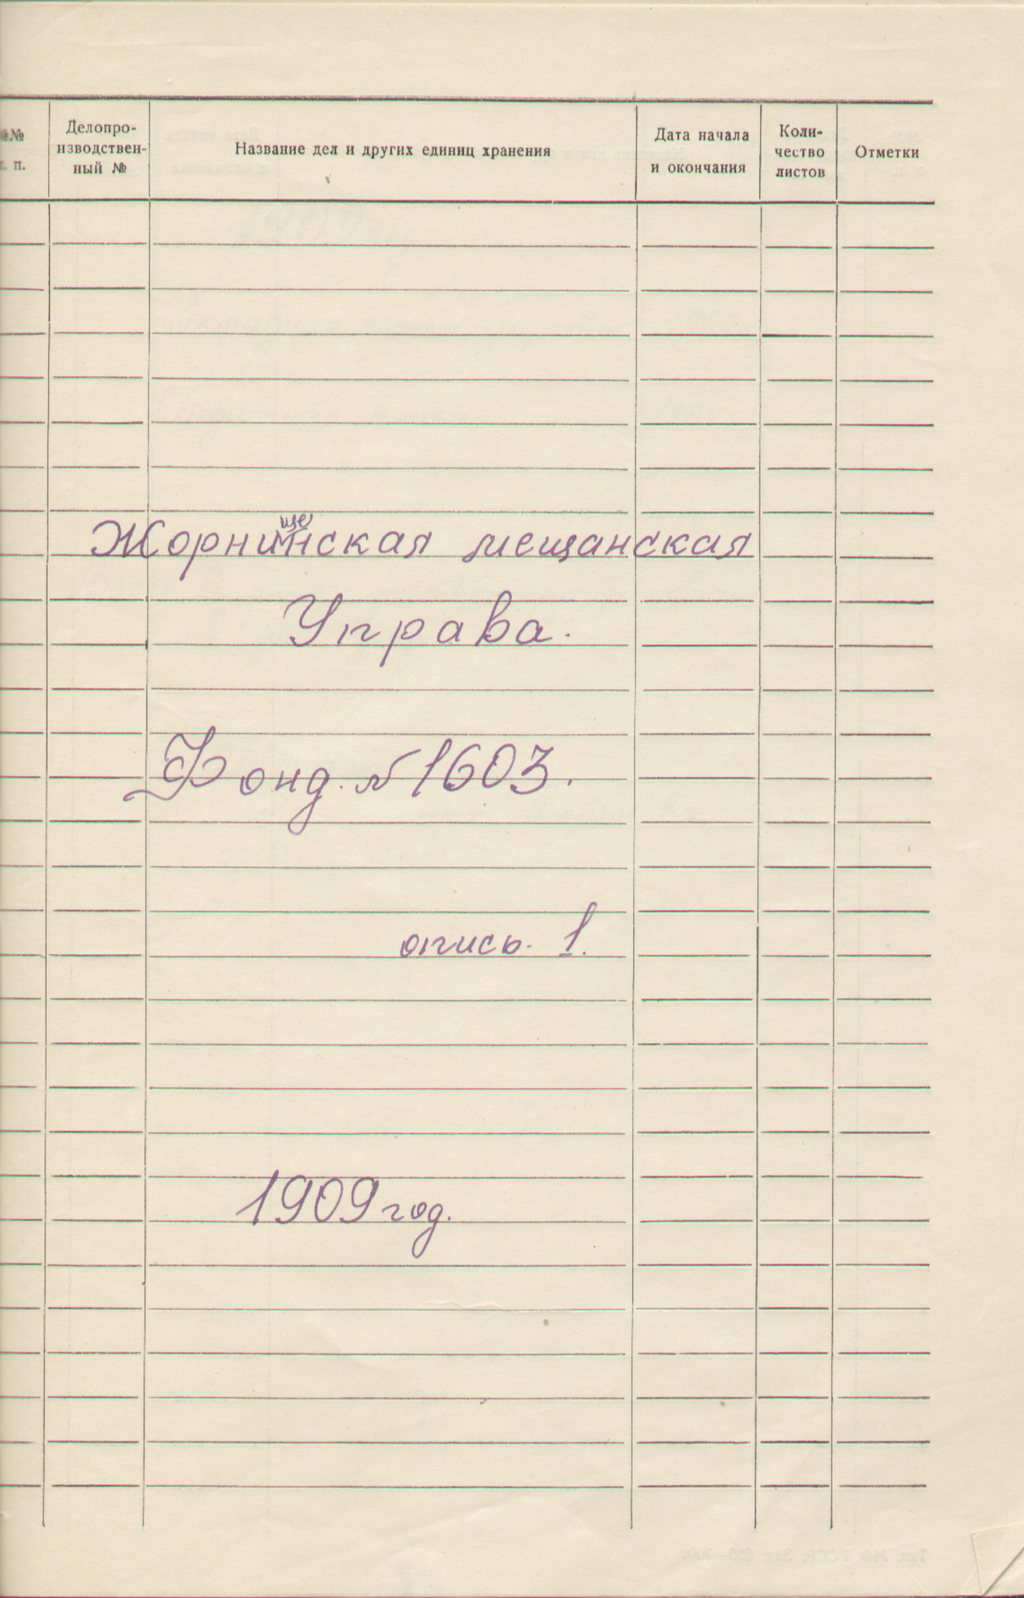 №№
п. п.
Делопро-
изводствен-
ный №
Название дел и других единиц хранения
Дата начала
и окончания
Коли-
чество
листов
Отметки
Жорнищенская мещанская
Управа.
Фонд. № 1603.
опись. 1.
1909 год.